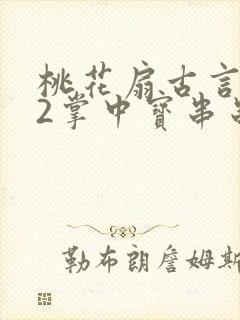 桃花扇古言
2掌中寳串
勒布朗詹姆斯